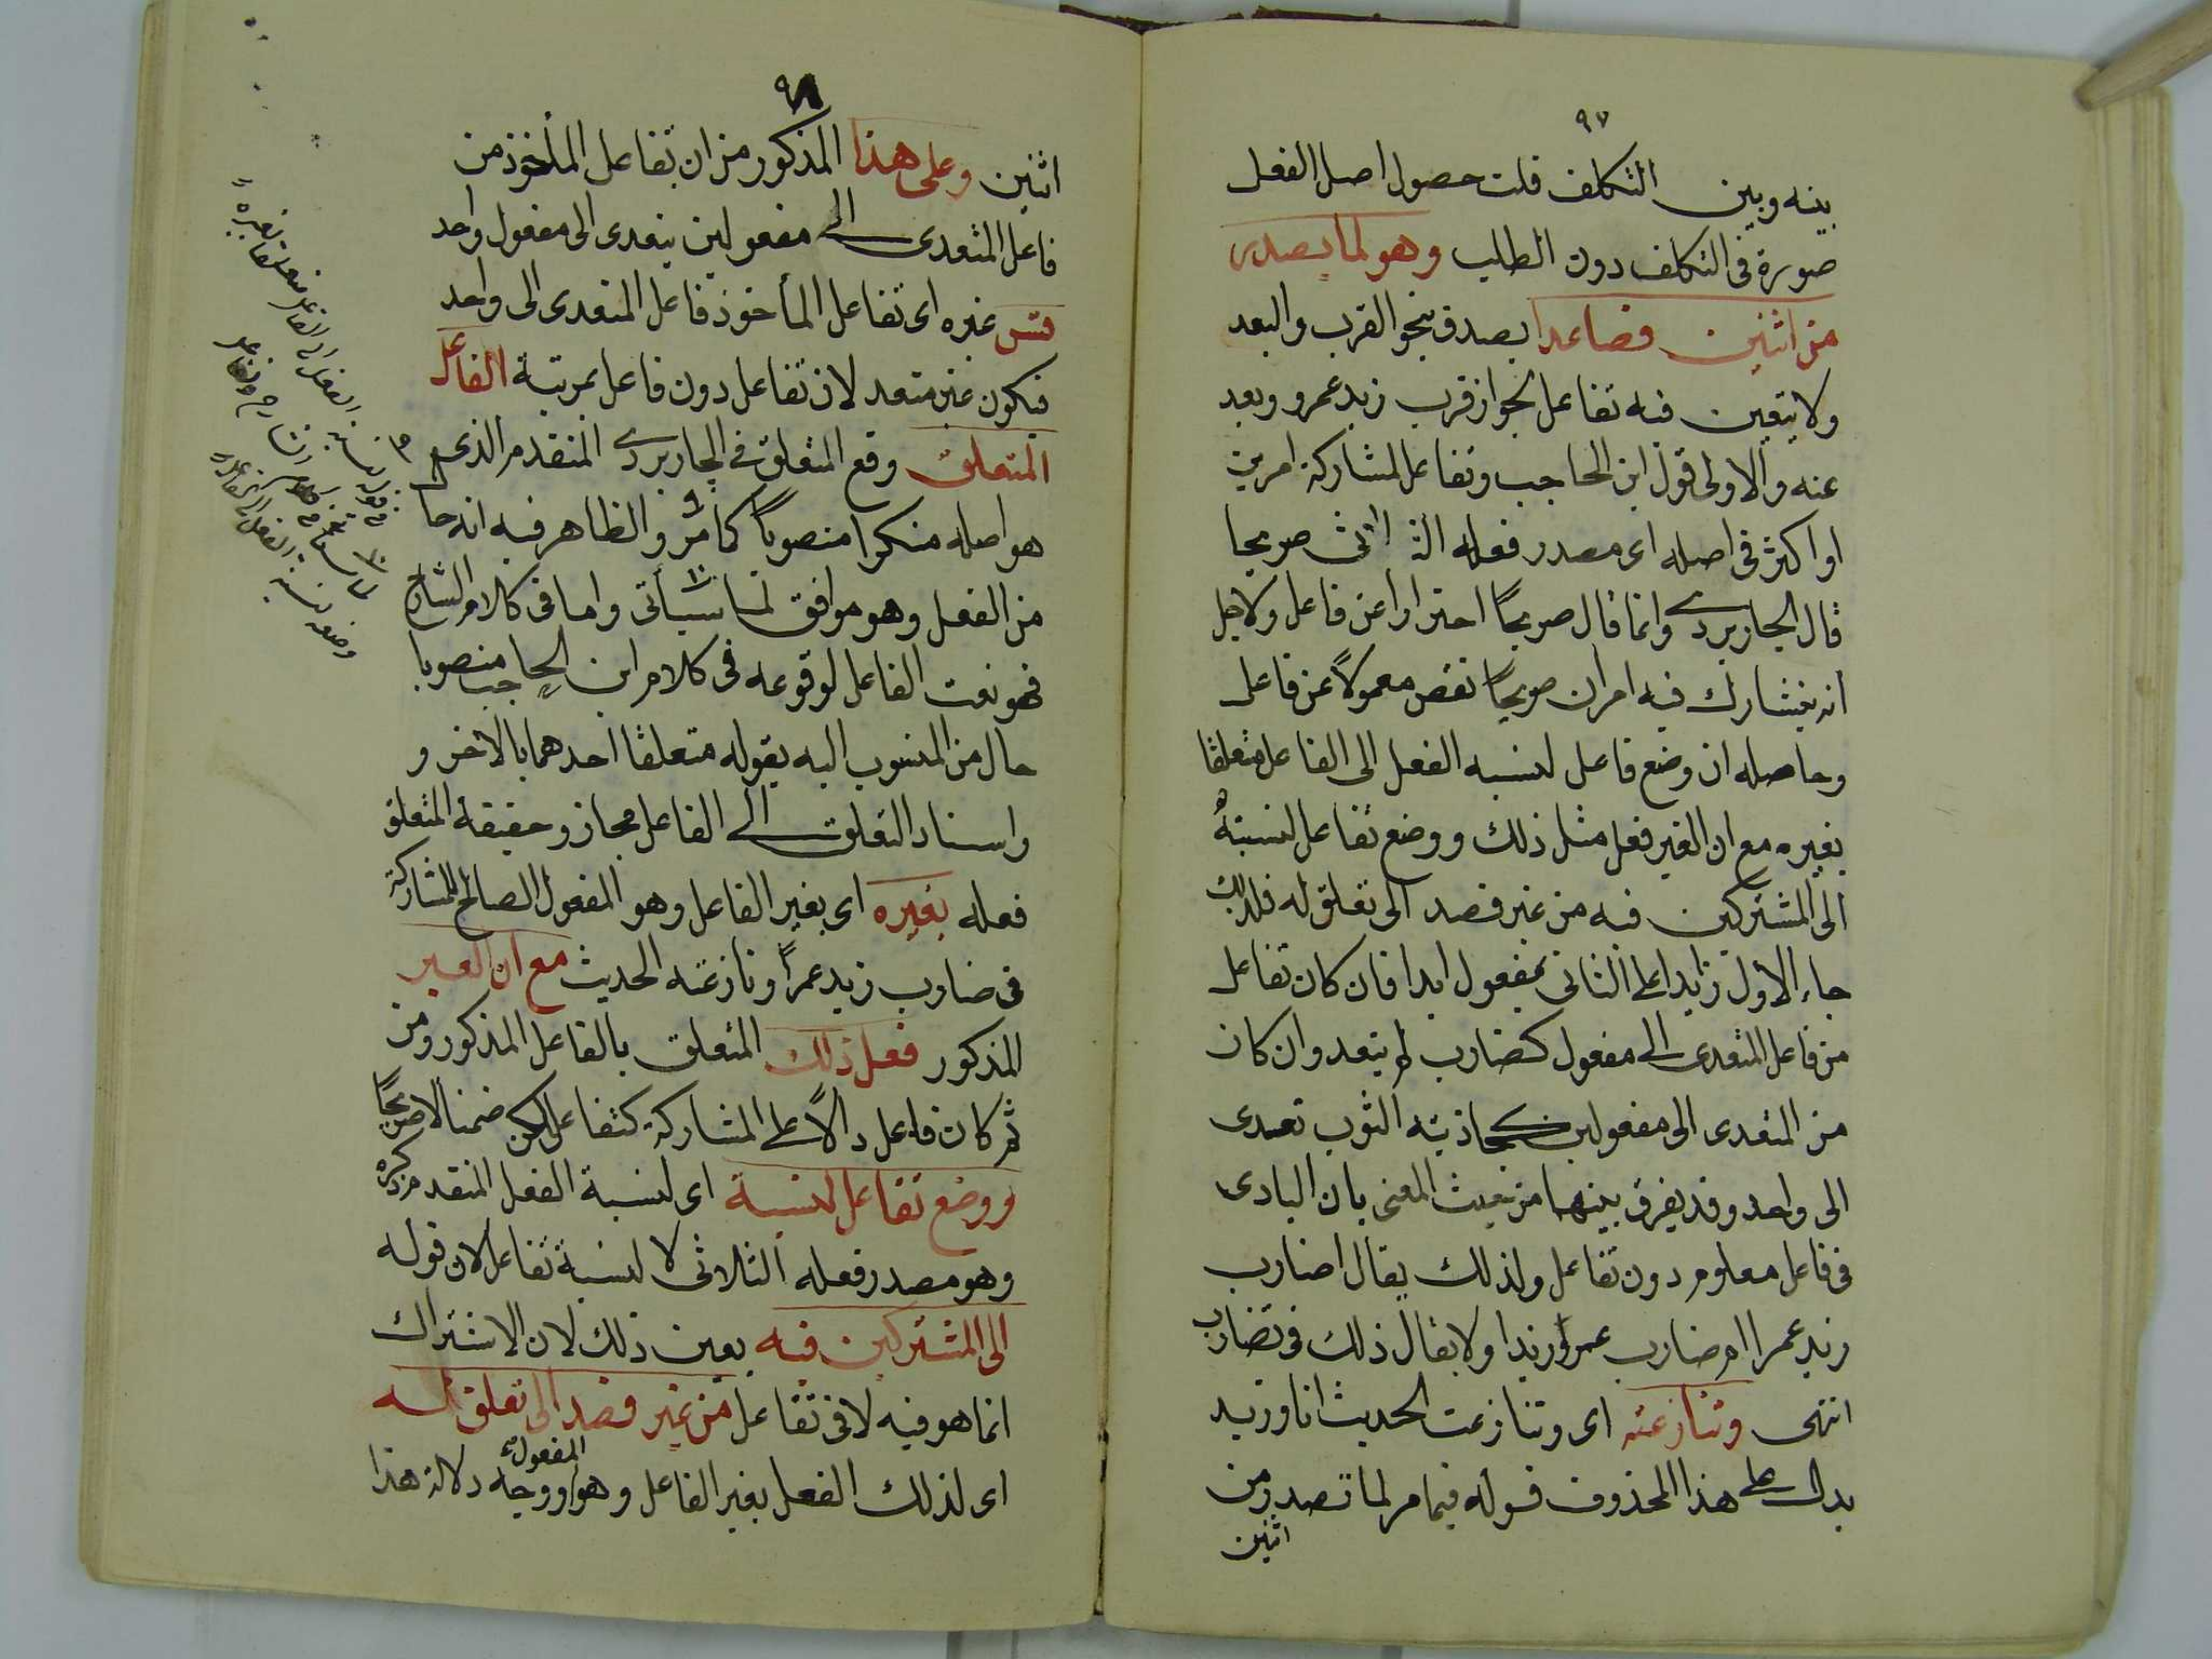 ٩٧
بينه وبين التكلف قلت حصول اصل الفعل
صورة فى التكلف دون الطلب وهو لما يصدر
من اثنين فصاعدا يصدق بنحو القرب والبعد
ولا يتعين فيه تفاعل لجواز قرب زيد عمرو وبعد
عنه والاولى قول ابن الحاجب وتفاعل لمشاركة امرين
او اكثر فى اصله اى مصدر فعله الثلاثى صريحا
قال الجاربردى وانما قال صريحًا احترازا عن فاعل ولاجل
انه يتشارك فيه امران صريحًا نقص معمولًا عن فاعل
وحاصله ان وضع فاعل لنسبه الفعل الى الفاعل متعلقا
بغيره مع ان الغير فعل مثل ذلك ووضع تفاعل لنسبته
الى المشتركين فيه من غير قصد الى تعلق له فلذلك
جاء الاول زايدا على الثانى بمفعول ابدا فان كان تفاعل
من فاعل المتعدى الى مفعول كضارب لم يتعد وان كان
من المتعدى الى مفعولين كجاذبته الثوب تعدى
الى واحد وقد يفرق بينهما من حيث المعنى بان البادى
فى فاعل معلوم دون تفاعل ولذلك يقال اضارب
زيد عمرا ام ضارب عمرو زيدا ولا يقال ذلك فى تضارب
انتهى وتنازعته اى وتنازعت الحديث انا وزيد
يدل على هذا المحذوف قوله فيما مر لما تصدر من
اثنين
٩٨
اثنين وعلى هذا المذكور من ان تفاعل المأخوذ من
فاعل المتعدى الى مفعولين يتعدى الى مفعول واحد
فقس غيره اى تفاعل المأخوذ فاعل المتعدى الى واحد
فيكون غير متعد لان تفاعل دون فاعل بمرتبة الفاعل
المتعلق وقع المتعلق فى الجاربردى المتقدم الذى
هو اصله منكرا منصوبًا كما مر والظاهر فيه انه حا
من الفعل وهو موافق لما سيأتى واما فى كلام الشارح
فهو نعت الفاعل لوقوعه فى كلام ابن الحاجب منصوبا
حال من المنسوب اليه بقوله متعلقا احدهما بالاخر و
واسناد التعلق الى الفاعل مجاز وحقيقة المتعلق
فعله بغيره اى بغير الفاعل وهو المفعول الصالح للمشاركة
فى ضارب زيد عمرًا ونازعته الحديث مع ان الغير
المذكور فعل ذلك المتعلق بالفاعل المذكور ومن
ثم كان فاعل دالًا على المشاركة كتفاعل لكن ضمنا لا صريحًا
ووضع تفاعل لنسبة اى لنسبة الفعل المتقدم ذكره
وهو مصدر فعله الثلاثى لا لنسبة تفاعل لان قوله
الى المشتركين فيه يعين ذلك لان الاشتراك
انما هو فيه لا فى تفاعل من غير قصد الى تعلق له
اى لذلك الفعل بغير الفاعل وهو المفعول ووجه دلالة هذا